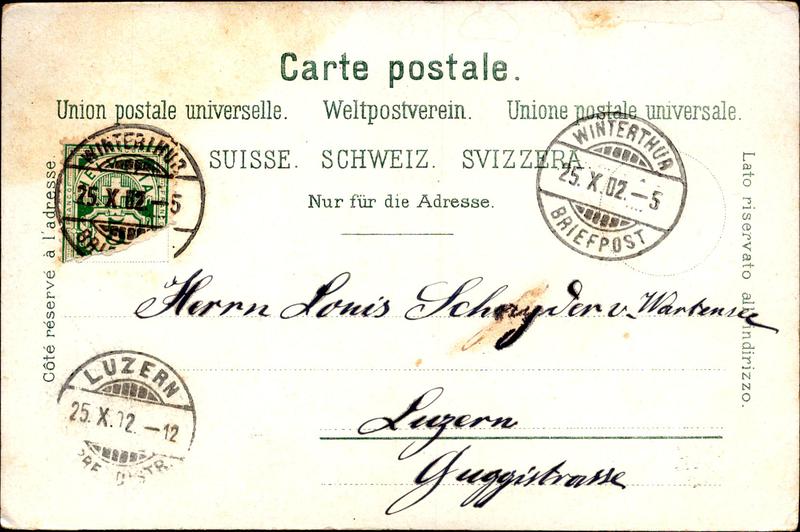 Carte postale.
Union postale universelle. Weltpostverein. Unione postale universale.
SUISSE. SCHWEIZ. SVIZZERA.
Nur für die Adresse.
Côté réservé à l'adresse.
Lato riservato all'indirizzo.
WINTERTHUR
25.X.02.-5
WINTERTHUR
25.X.02.-5
BRIEFPOST
Herrn Louis Schnyder v. Wartensee
Luzern
Guggistrasse
LUZERN
25.X.02.-12